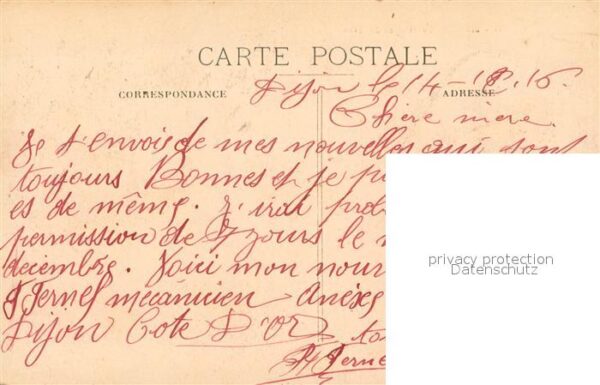 CARTE POSTALE
CORRESPONDANCE
ADRESSE
Dijon le 14-12.16.
Chère mère.
Je t envois de mes nouvelles qui sont
toujours Bonnes et je
es de même. J'irai
permission de 7 jours le
décembre. Voici mon
mécanicien
Dijon Cote D'Or
privacy protection
Datenschutz